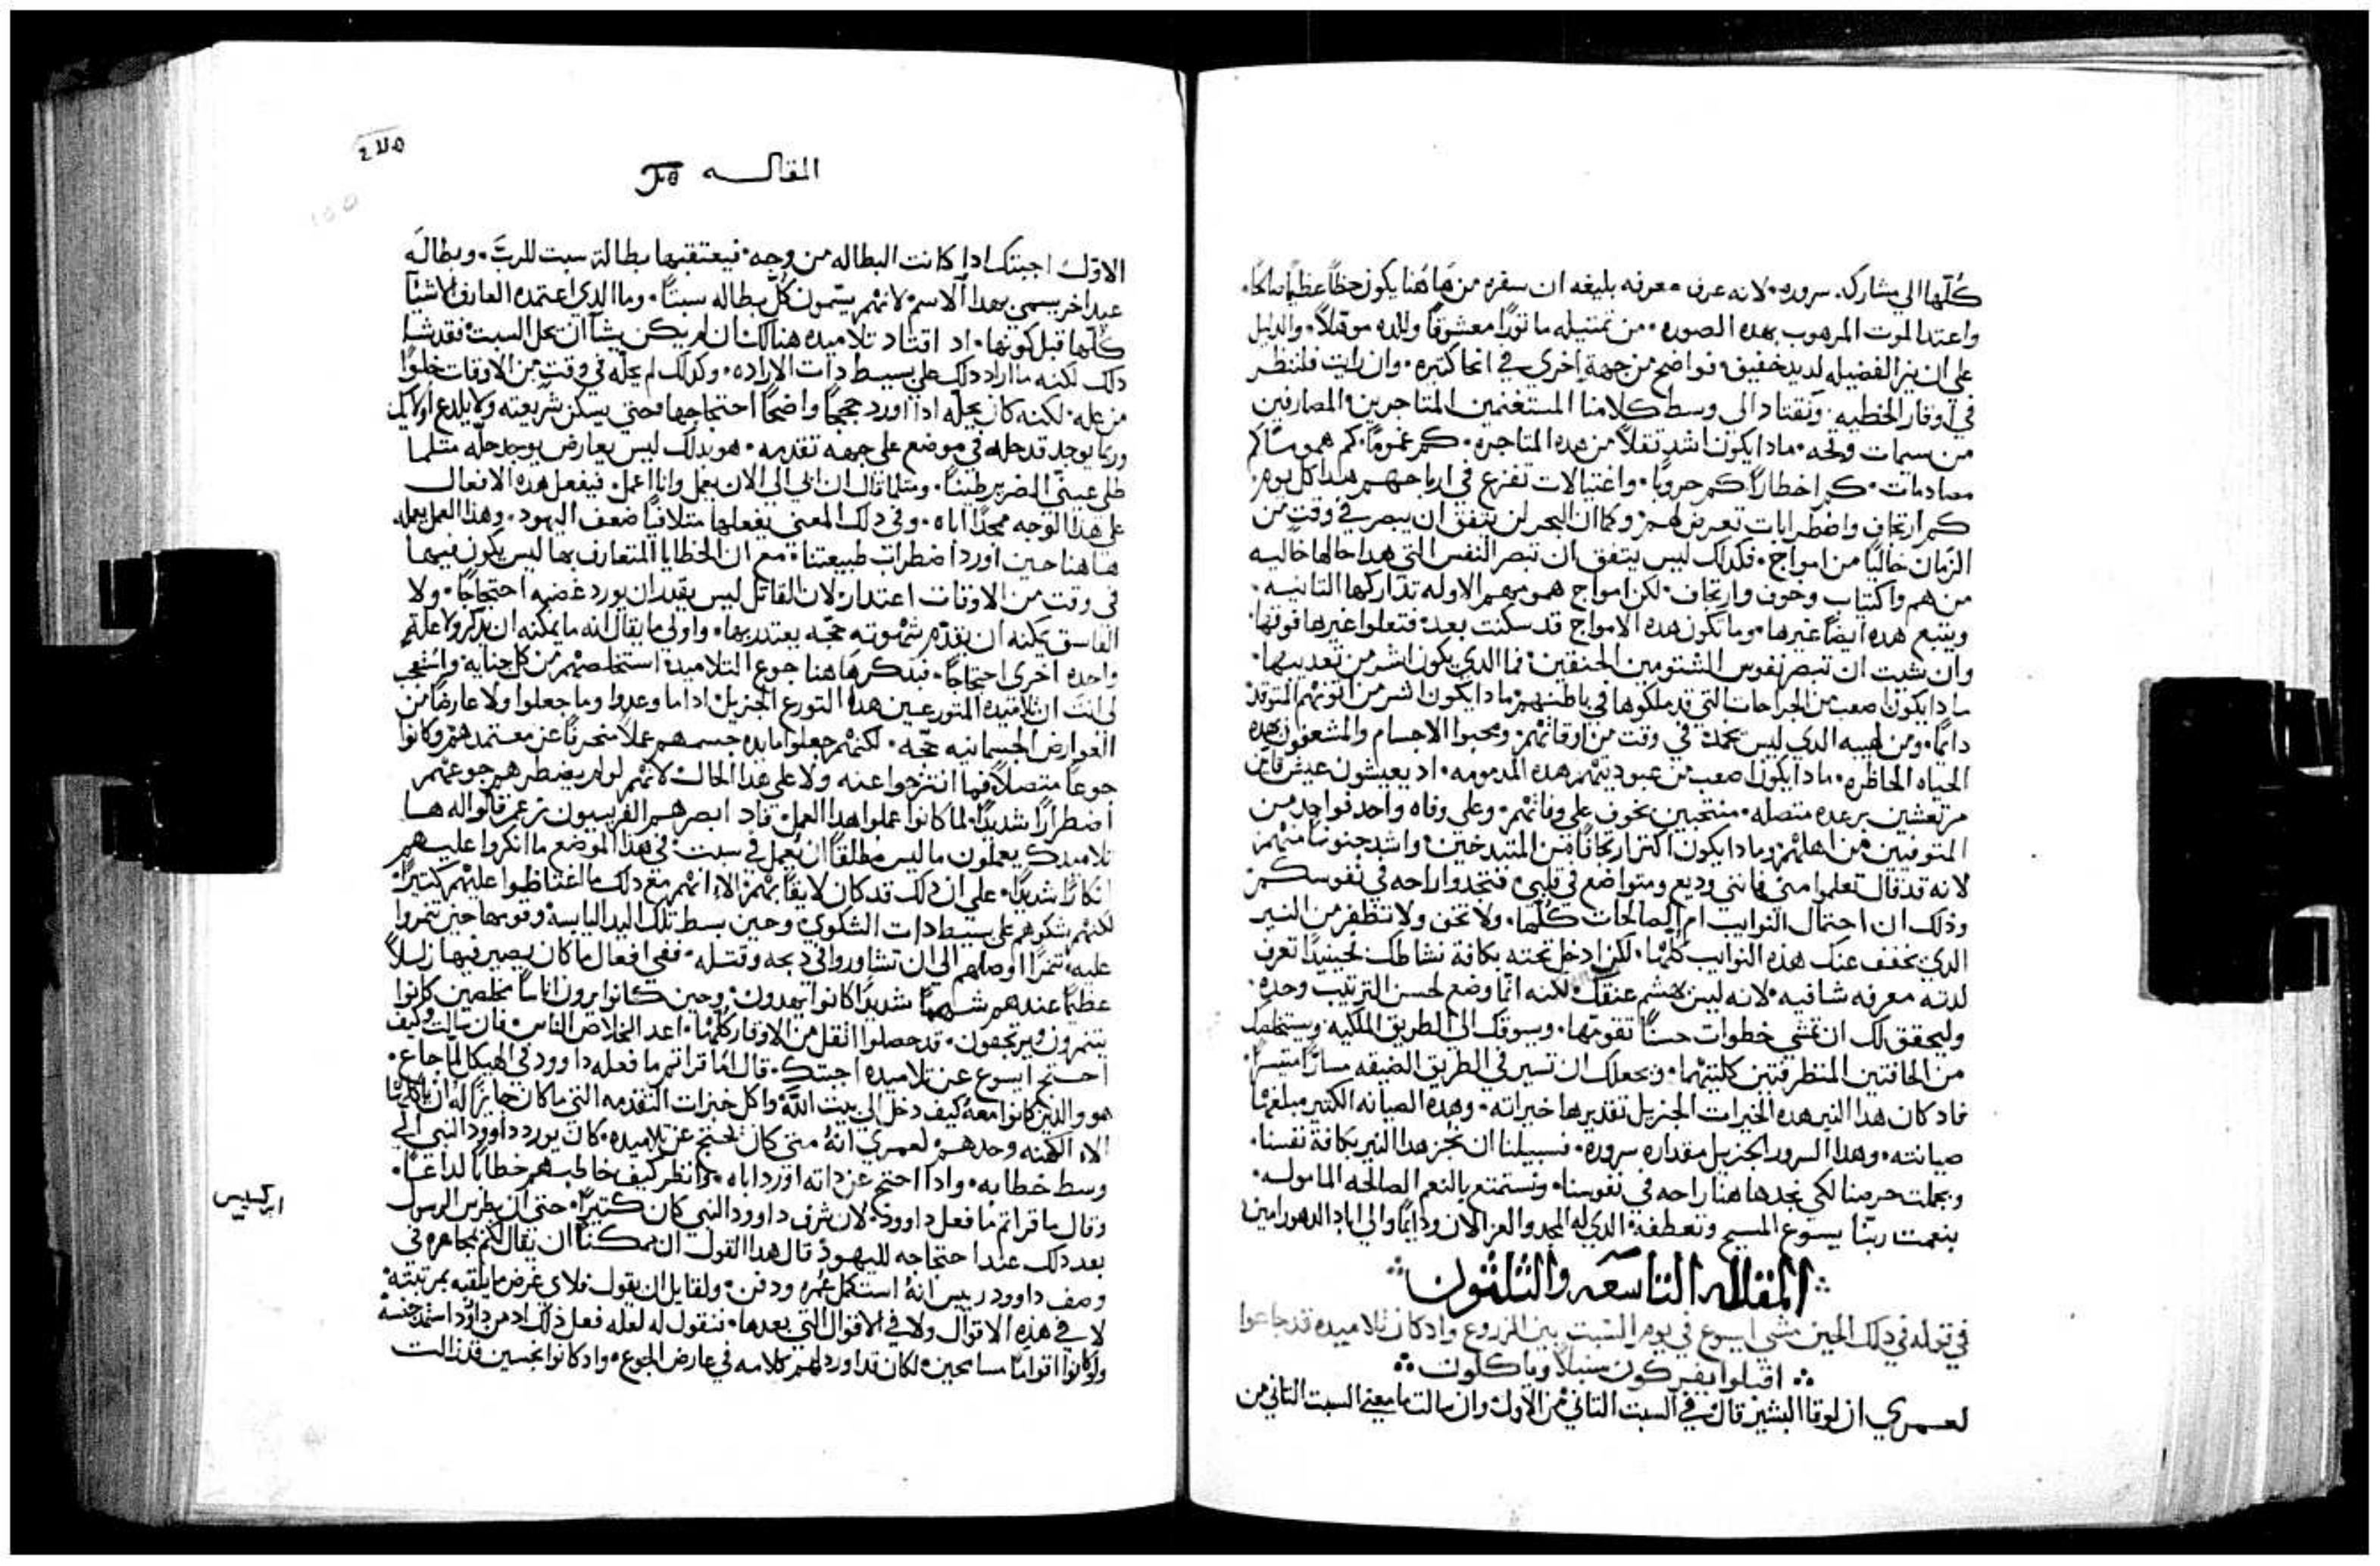 كلها الي مشاركة سروره. لانه عرف معرفه بليغه ان سفره من هاهنا يكون حظاً عظيماً صالحاً.
واعتدا الموت المرهوب بهده الصوره. من تمتيله مانورا معشوقاً ولالده موملاً. والدليل
علي ان نير الفضيله لديد خفيف. فواضح من جهةٍ اخري في انحا كتيره. وان رايت فلننظر
في اوقار الخطيه. ونقتاد الى وسط كلامنا المستغنمين المتاجرين والمصارفين
من سيمات وقحه. مادا يكون اشد تقلاً من هده المتاجره. كم غموماً. كم هموماً كم
مصادمات. كم اخطاراً كم حروباً. واغتيالات تفزع في ارباحهم هدا كل يوم.
كم ارتجاف واضطرابات تعرض لهم. وكما ان البحر لن يتفق ان يبصر في وقت من
الزمان خالياً من امواج. فكدلك ليس يتفق ان تبصر النفس التي هدا حالها خاليه
من هم واكتياب وخوف وارتجاف. لكن امواج همومهم الاوله تداركها التانيه.
ويتبع هده ايضاً غيرها. وما تكون هده الامواج قد سكنت بعد. فتعلوا غيرها فوقها.
وان شيت ان تبصر نفوس الشتومين الحنقين. فما الدي يكون اشر من تعديبها.
مادا يكون اصعب من الجراحات التي قد ملكوها في باطنهم. مادا يكون اشر من اتونهم المتوقد
دايماً. ومن لهيبه الدي ليس يخمد في وقت من اوقاتهم. ومحبوا الاجسام والمشغوفون بهده
الحياه الحاظره. مادا يكون اصعب من عبوديتهم هده المدمومه. اد يعيشون عيش قاين
مرتعشين برعده متصله. منتحبين بخوف علي وفاتهم. وعلي وفاه واحد فواحد من
المتوفيين من اهلهم. ومادا يكون اكتر ارتجافاً من المتبدخين. واشد جنوناً منهم
لانه قد قال تعلموا مني فانني وديع ومتواضع في قلبي. فتجدوا راحه في نفوسكم.
وذلك ان احتمال النوايب ام الصالحات كلها. ولا تخف ولا تتظفر من النير
الدي يخفف عنك هذه النوايب كلها. لكن ادخل تحته بكافة نشاطك فحينيداً تعرف
لدته معرفه شافيه. لانه ليس يهشم عنقك. لكنه انما وضع لحسن الترتيب وحده.
وليحقق لك ان تمشي خطوات حسناً تقومها. ويسوقك الي الطريق الملكيه ويستخلصك
من الحافتين المتظرفتين كلتيهما. ويجعلك ان تسير في الطريق الضيقه مساراً متيسراً.
فاد كان هدا النير هده الخيرات الجزيل تقديرها خيراته. وهده الصيانه الكتير مبلغها
صيانته. وهدا السرور الجزيل مقداره سروره. فسبيلنا ان نجر هدا النير بكافة نفسنا.
وبجملت حرصنا لكي نجد هاهنا راحه في نفوسنا. ونستمتع بالنعم الصالحه الماموله.
بنعمت ربنا يسوع المسيح وتعطفه. الدي له المجد والعز الان ودايماً والي اباد الدهور امين
المقاله التاسعه والتلتون
في قوله في دلك الحين مشي ايسوع في يوم السبت بين الزروع واد كان تلاميده قد جاعوا
اقبلوا يفركون سنبلاً وياكلون
لعمري ان لوقا البشير قال في السبت التاني من الاول. وان سالت ما معني السبت التاني من
٢٧٥
المقاله
الاول. اجبتك ادا كانت البطاله من وجه. فيعتقبها بطالة سبت للرب. وبطاله
عيداً اخر يسمي بهدا الاسم. لانهم يسمون كل بطاله سبتاً. وما الدي اعتمده العارف الاشيا
كلها قبل كونها. اد اقتاد تلاميده هنالك ان لم يكن يشآ ان يحل السبت. فقد شا
دلك لكنه ما اراد دلك علي بسيط دات الاراده. وكدلك لم يحله في وقت من الاوقات خلواً
من عله. لكنه كان يحله ادا اورد حججاً واضحاً احتجاجها. فحتي يسكن شريعته ولا يلدع اولايك
وربما يوجد قد حله في موضع علي جهه تقدمه. هو بدلك ليس يعارض يوجد حله متلما
طلي عينى الضرير طيناً. ومتلما قال ان ابي الي الان يعمل وانا اعمل. فيفعل هده الافعال
علي هدا الوجه ممجداً اباه. وفي دلك المعنى يفعلها متلافياً ضعف اليهود. وهذا العمل يعمله
هاهنا حين اورد اضطرات طبيعتنا. مع ان الخطايا المتعارف بها ليس يكون فيها
في وقت من الاوقات اعتدار. لان القاتل ليس يقدر ان يورد غضبه احتجاجاً. ولا
الفاسق يمكنه ان يقدم شهوته حجه يعتدر بها. واولي ما يقال انه ما يمكنه ان يدكر ولا علة
واحده اخرى احتجاجاً. فبدكر هاهنا جوع التلاميد. استخلصهم من كل جنايه. واستعجب
لي انت ان تلاميده المتورعين هدا التورع الجزيل. اداما وعدوا وما جعلوا ولا عارضاً من
العوارض الجسمانيه حجه. لكنهم جعلوا مايدة جسمهم عملاً منحرفاً عن معتمدهم. وكانوا
جوعاً متصلاً. فما انتزحوا عنه ولا علي هدا الحال. لانهم لو لم يضطرهم جوعهم
اضطراراً شديداً. لما كانوا عملوا هدا العمل. فاد ابصرهم الفريسيون زعم قالوا له ها
تلاميدك يعملون ما ليس مطلقاً ان يعمل في سبت. في هدا الموضع ما انكروا عليهم
انكاراً شديداً. علي ان دلك قد كان لايقاً بهم. الا انهم مع دلك ما اغتاظوا عليهم كتيراً.
لكنهم شكوهم علي بسيط دات الشكوي. وحين بسط تلك اليد اليابسه وقومها حين تنمروا
عليه. تنمراً اوصلهم الي ان تشاوروا في دبحه وقتله. ففي افعال ما كان يصير فيها زللاً
عظيماً عندهم شهماً شديداً كانوا يهدون. وحين كانوا يرون اناساً مخلصين كانوا
يتنمرون ويرتجفون. قد حصلوا اثقل من الاوقار كلها. اعد الخلاص الناس. فان سالت وكيف
احتج ايسوع عن تلاميده اجبتك. قال اما قراتم ما فعله داوود في الهيكل لما جاع.
هو والذين كانوا معه. كيف دخل الي بيت الله. واكل خبزات التقدمه التي ما كان جايزاً له ان ياكلها
الا الكهنه وحدهم. لعمري انه متى كان يحتج عن تلاميده. كان يورد داوود النبي الي
وسط خطابه. وادا احتج عن داته اورد اباه. وانظر كيف خاطبهم خطاباً لداعاً.
وقال ما قراتم ما فعل داوود. لان شرف داوود النبي كان كتيراً. حتى ان بطرس الرسول
بعد دلك عند احتجاجه لليهود قال هدا القول. ان ممكناً ان يقال لكم بمجاهره في
ابركسيس
وصف داوود رييس انه استكمل عمره ودفن. ولقايل ان يقول فلاي غرض ما يلقبه بمرتبته
لا في هذه الاقوال ولا في الاقوال التي بعدها. فنقول له لعله فعل ذلك اد من داوود استمد جنسه
ولو كانوا اقواماً مسامحين. لكان قد اورد لهم كلامه في عارض الجوع. واد كانوا نجسين قد زالت